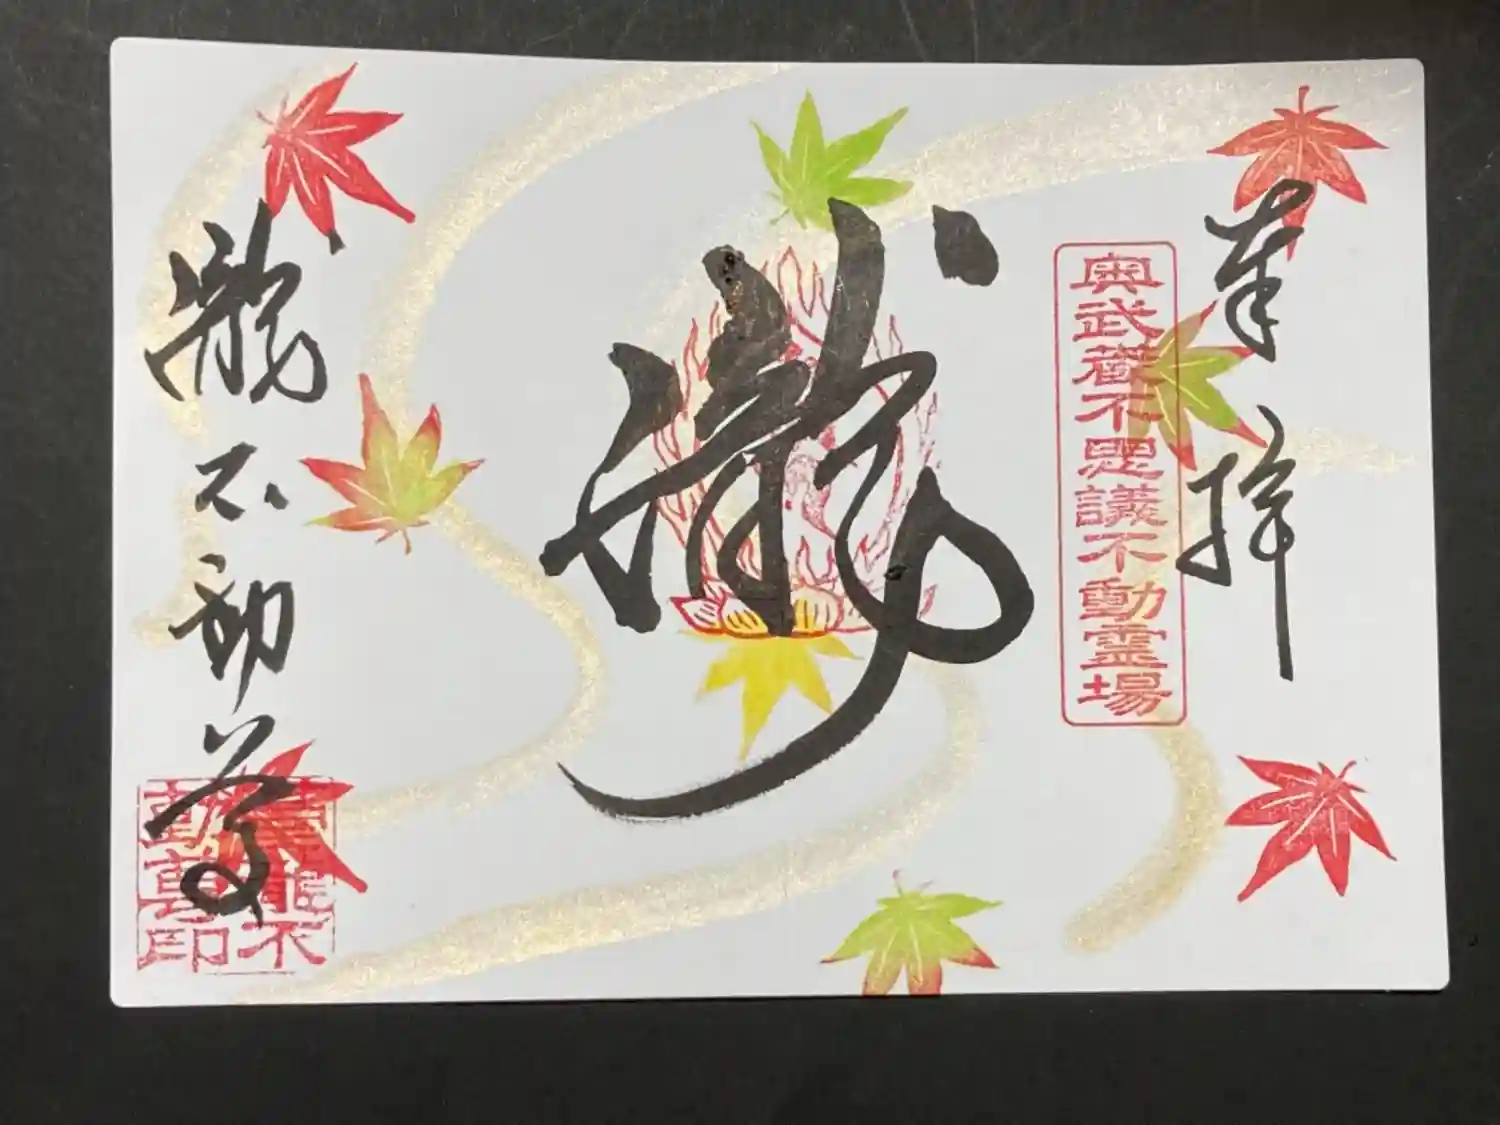 奉拝
奥武蔵不思議不動霊場
瀧
瀧不動尊
不
動尊印